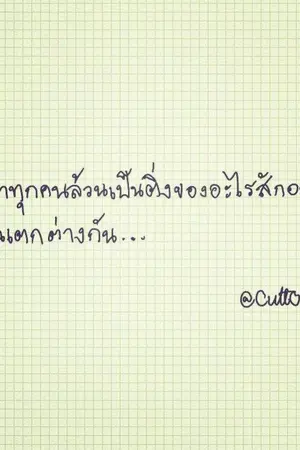 าทุกคนล้วนเป็นติ่งของอะไรสักอ
แตกต่างกัน...
@Cutt